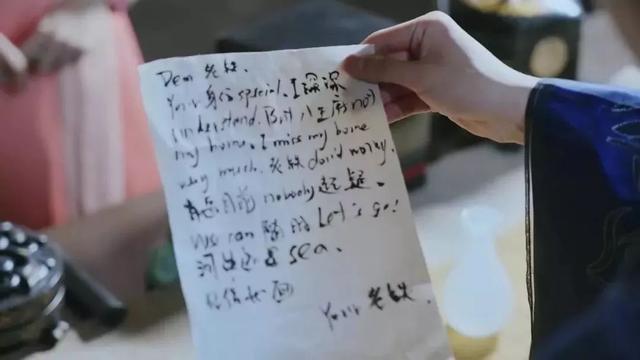 Dear 老铁.
Your 身份 special. I 深深
understand. But 八王府 not
my home. I miss my home
very much. 老铁 don't worry.
目前 nobody 起疑.
We can 随时 Let's go!
河 sea.
Your 老铁.